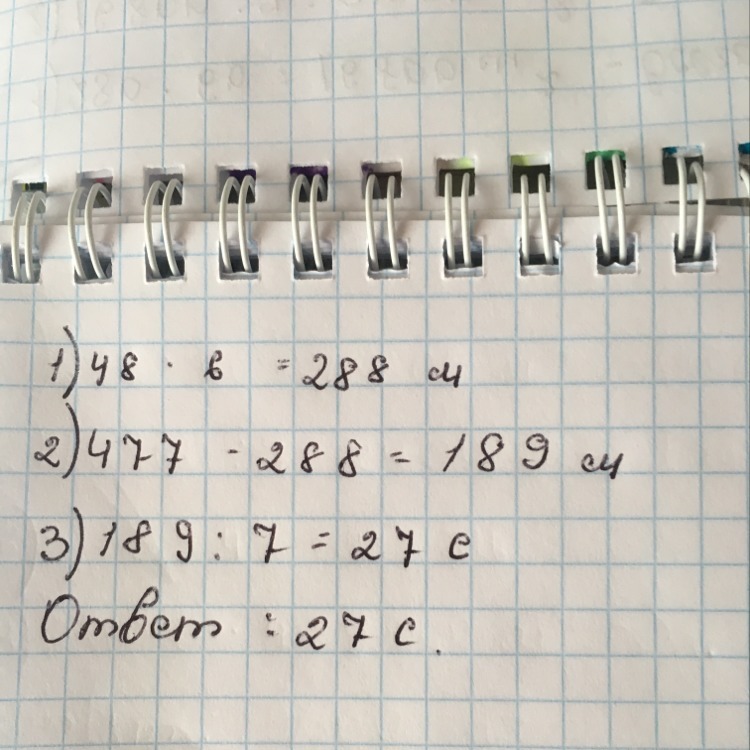 1) 48 · 6 = 288 см
2) 477 - 288 = 189 см
3) 189 : 7 = 27 с
Ответ : 27 с.